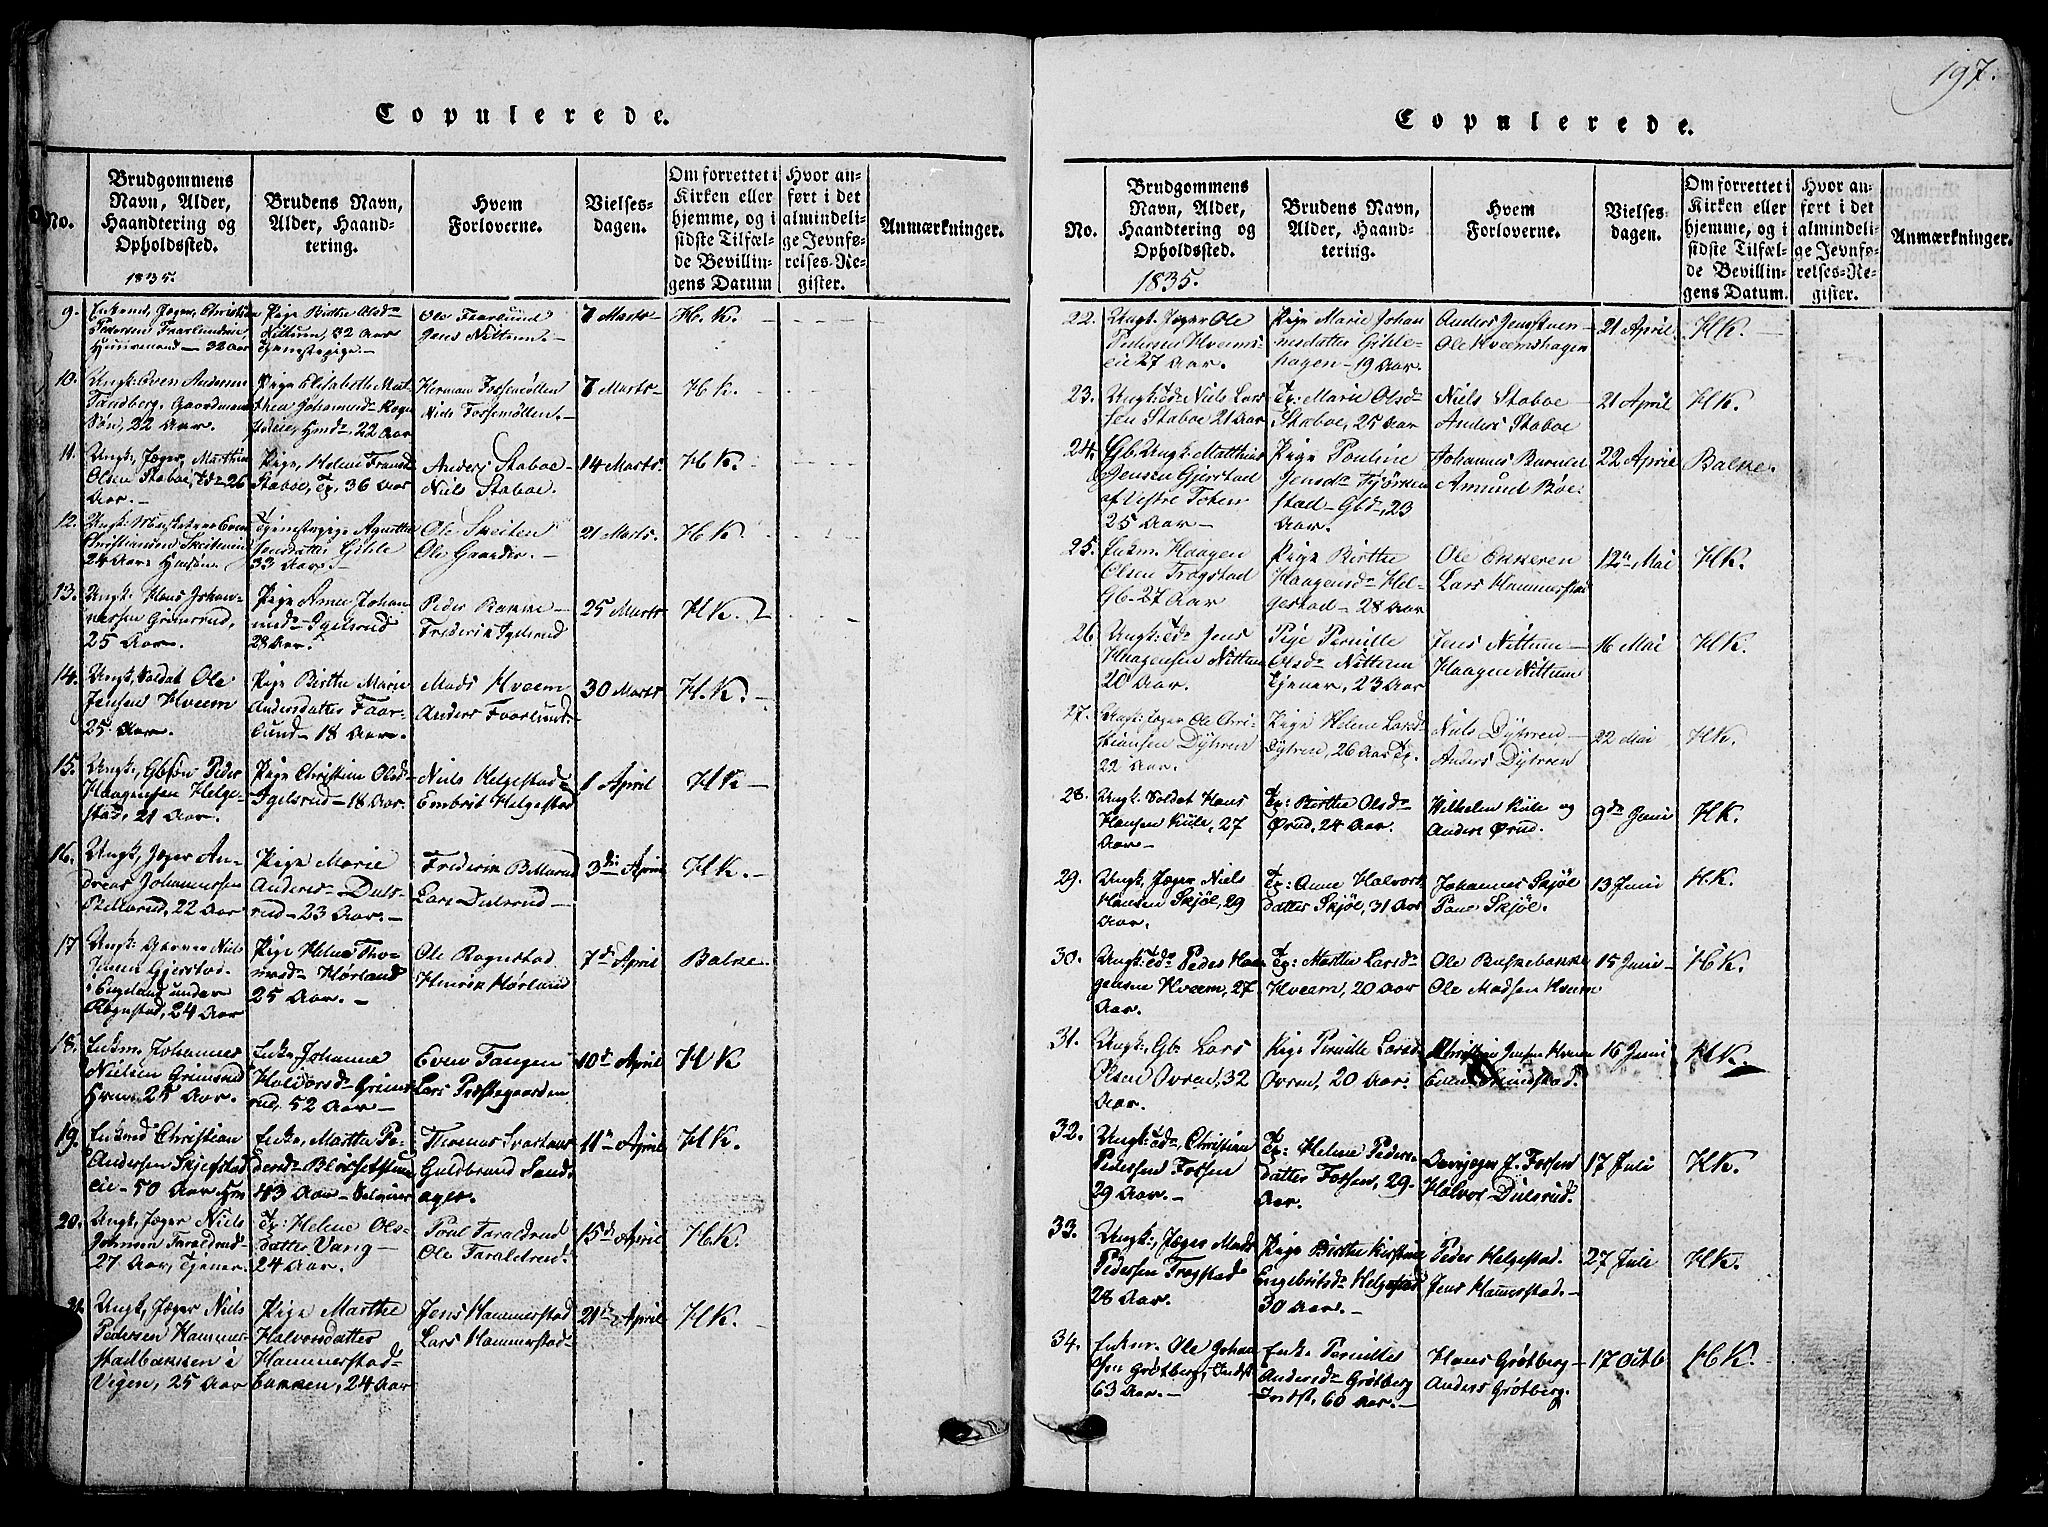 197.
Copulerede.
No.
Brudgommens
Navn, Alder,
Haandtering og
Opholdssted.
1835.
Brudens Navn,
Alder, Haand-
tering.
Hvem
Forloverne.
Vielses-
dagen.
Om forrettet i
Kirken eller
hjemme, og i
sidste Tilfæl-
de Bevillin-
gens Datum
Hvor an-
ført i det
almindeli-
ge Jevnfø-
relses-Re-
gister.
Anmærkninger.
9. Enkemd, Jæger, Christian
Pedersen Faarlundeie,
Huusmand - 32 Aar
Pige Birthe Olsdr
Nittum, 32 Aar
Tjenestepige. -
Ole Faarlund
Jens Nittum. -
7 Marts
H. K.
10. Ungk: Even Andersen
Sandberg, Gaardmans
Søn, 22 Aar.
Pige Elisabeth Mat-
thea Johannesdr
22 Aar
Herman Fossemøllen
Niels Fossemøllen. -
7 Marts
H K.
11. Ungk, Jæger, Marthin
Olsen Staboe, 26
Aar. -
Pige, Helene Fransdr
Staboe, Tj. 36 Aar
Anders Staboe -
Niels Staboe.
14 Marts.
H K.
12. Ungk: Musketeer Even
Christiansen Skeiteneie
24 Aar
Tjenestepige Agnethe
Jensdatter Gihle
33 Aar. -
Ole Skeiten
Ole Gaarder. -
21 Marts.
H K.
13. Ungk: Hans Johan-
nessen Grimsrud,
25 Aar.
Pige Anne Johan
nesdr Igelsrud
28 Aar.
Peder Bakke -
Frederik Igelsrud
25 Marts
H K.
14. Ungk, Soldat Ole
Jensen Hveem
25 Aar.
Pige Birthe Marie
Andersdatter Faar-
lund - 18 Aar.
Mads Hveem
Anders Faarlund -
30 Marts
H. K.
15. Ungk, Gbsøn Peder
Haagensen Helge-
stad, 21 Aar.
Pige Christine Olsdr
Igelsrud - 18 Aar.
Niels Helgestad
Embrit Helgestad
1 April
H K -
16. Ungk, Jæger An-
dreas Johannessen
Billerud, 22 Aar
Pige Marie
Andersdr Duls-
rud - 23 Aar. -
Frederik Billerud
Lars Dulsrud
3die April
H K. -
17. Ungk: Garver Niels
Jensen Gjerstad
i Engeland under
Rognstad, 24 Aar
Pige Helene Tho-
masdr Hørland
25 Aar. -
Ole Rognstad
Henrik Hørlund
7de April
Balke.
18. Enkm. Johannes
Nielsen Grimsrud
25 Aar.
Enke Johanne
Halvorsdr Grims
rud, 52 Aar -
Even Tangen
Lars Prestegaarden
10de April
H K
19. Enkmd Christian
Andersen Skjefstad
eie - 50 Aar
Enke, Marthe Pe-
dersdr
43 Aar -
Thomas
Guldbrand Sand-
ager.
11te April
H K.
20. Ungk, Jæger Niels
Johnsen Faraldrud
27 Aar, Tjener.
Tj: Helene Ols-
datter Vang -
24 Aar.
Poul Faraldrud
Ole Faraldrud.
15de April
H K.
21. Ungk, Jæger Niels
Pedersen Hammer-
stadbakken i
Vigen, 25 Aar
Pige Marthe
Halvorsdatter
Hammerstad-
bakken, 24 Aar
Jens Hammerstad
Lars Hammerstad
21de April
H K.
Copulerede.
No.
Brudgommens
Navn, Alder,
Haandtering og
Opholdssted.
1835.
Brudens Navn,
Alder, Haand-
tering.
Hvem
Forloverne.
Vielses-
dagen.
Om forrettet i
Kirken eller
hjemme, og i
sidste Tilfæl-
de Bevillin-
gens Datum.
Hvor an-
ført i det
almindeli-
ge Jevnfø-
relses-Re-
gister.
Anmærkninger.
22. Ungk. Jæger Ole
Pedersen Hveems-
eie 27 Aar.
Pige Marie Johan
nesdatter Gihle-
hagen - 19 Aar.
Anders
Ole Hveemshagen
21 April.
H K.
23. Niels Lars
sen Staboe 21 Aar
Tj: Marie Olsdr
Staboe, 25 Aar
Niels Staboe -
Anders Staboe
21 April
H K.
24. Gb. Ungk. Matthias
Jensen Gjerstad
af Vestre Toten
25 Aar -
Pige Pouline
Jensdr
stad - Gbdr, 23
Aar.
Johannes
Amund Bøe.
22 April
Balke.
25. Enkm. Haagen
Olsen Trogstad
Gb - 27 Aar
Pige Birthe
Haagensdr Hel-
gestad - 28 Aar
Ole Ekkeren
Lars Hammerstad
12te Mai
H K.
26. Ungk: Jens
Haagensen Nittum
20 Aar.
Pige Pernille
Olsdr Nittum
Tjener, 23 Aar
Jens Nittum -
Haagen Nittum
16 Mai
H K.
27. Ungk: Jæger Ole Chri-
stiansen Dyhren
22 Aar.
Pige Helene Larsdr
Dyhren, 26 Aar Tj.
Niels Dyhren -
Anders Dyhren
22 Mai
H K.
28. Ungk. Soldat Hans
Hansen Kiile, 27
Aar -
Tj: Birthe Olsdr
Ørud, 24 Aar.
Wilhelm Kiile og
Anders Ørud.
9de Juni
H K.
29. Ungk, Jæger Niels
Hansen Skjøl, 29
Aar.
Tj: Anne Halvors
datter Skjøl, 31 Aar
Johannes Skjøl
Poul Skjøl.
13 Juni
H. K.
30. Ungk: Peder Haa
gensen Hveem, 27
Aar.
Tj: Marthe Larsdr
Hveem, 20 Aar
Ole
Ole Madsen Hveem
15 Juni
H K.
31. Ungk, Gb. Lars
Olsen Ovren, 32
Aar.
Pige Pernille Larsdr
Ovren, 20 Aar.
Christian Jensen Hveem
Even
16 Juni
H K.
32. Ungk: Christian
Pedersen Fossen
29 Aar. -
Tj: Helene Peders-
datter Fossen, 29
Aar.
J. Fossen
Halvor Dulsrud.
17 Juli
H K.
33. Ungk:, Jæger Mads
Pedersen Trogstad
28 Aar.
Pige Birthe Kirstine
Engebritsdr Helgestad
30 Aar. -
Peder Helgestad.
Jens Hammerstad. -
27 Juli
H K.
34. Enkm. Ole Johan
sen Grøtberg, Inderst
63 Aar. -
Enke Pernille
Andersdr Grøtberg
Inderst, 60 Aar. -
Hans Grøtberg -
Anders Grøtberg.
17 Octb
H K.